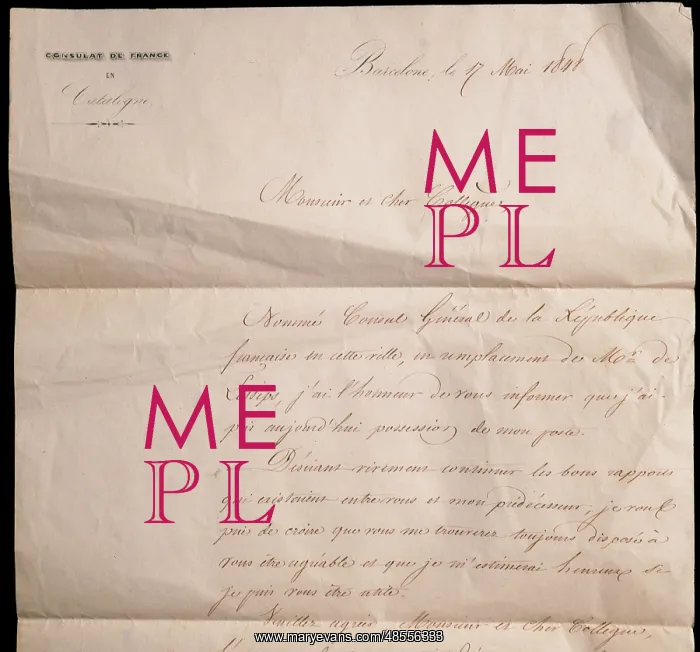 CONSULAT DE FRANCE
EN
Catalogne
Barcelone, le 17 Mai 1848
Monsieur et cher Collègue,
Nommé Consul Général de la République
française en cette ville, en remplacement de Mr. de
Lesseps, j'ai l'honneur de vous informer que j'ai
pris aujourd'hui possession de mon poste.
Désirant vivement continuer les bons rapports
qui existaient entre vous et mon prédécesseur, je vous
prie de croire que vous me trouverez toujours disposé à
vous être agréable et que je m'estimerai heureux si
je puis vous être utile.
Veuillez agréer, Monsieur et cher Collègue,
ME
PL
ME
PL
www.maryevans.com/48556333